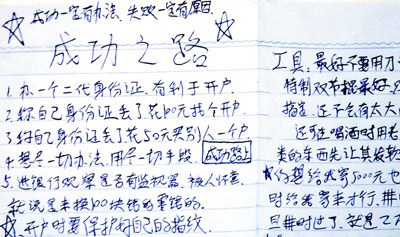 ☆ 成功一定有办法、失败一定有原因
成功之路
1. 办一个二代身份证、有利于开户
2. 称自己身份证丢了花100元找个开户.
3. 称自己身份证丢了花50元买别人一个户
4. 想尽一切办法,用尽一切手段 成功路上
5. 进银行观察是否有监视器.被人怀疑
就说是来换100块钱的零钱的.
☆.开户时要保护好自己的指纹.
☆
工具:最好不要用刀
特制双节棍最好.
指定.还不会有太大
还可喝酒时用
类的东西先让其
你想给我寄5000元也
时给我寄来才行.并
旦并时过了.就是